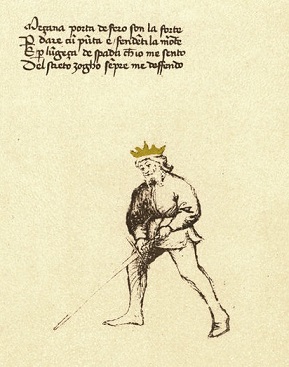 Meçana porta de fero son la forte
P dare cū pūta e fendēti la mōte
E p lūgeça de spada ch̄ io me sento
Del streto zogho sēpre me deffendo